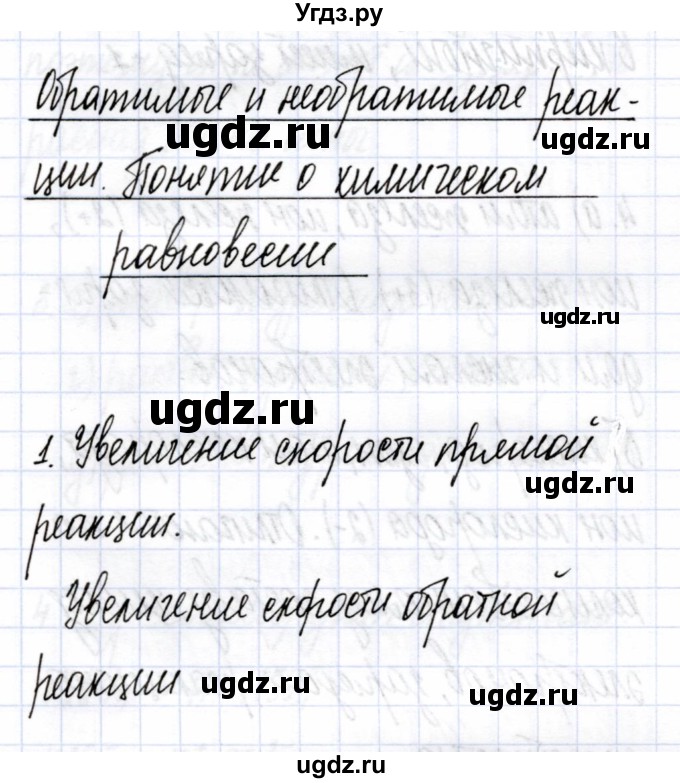 Угдз.ру
Обратимые и необратимые реак-
ugdz.ru
ugdz.ru
ции. Понятие о химическом
равновесии
ugdz.ru
ugdz.ru
1. Увеличение скорости прямой
ugdz.ru
реакции.
Увеличение скорости обратной
реакции
ugdz.ru
ugdz.ru
ugdz.ru